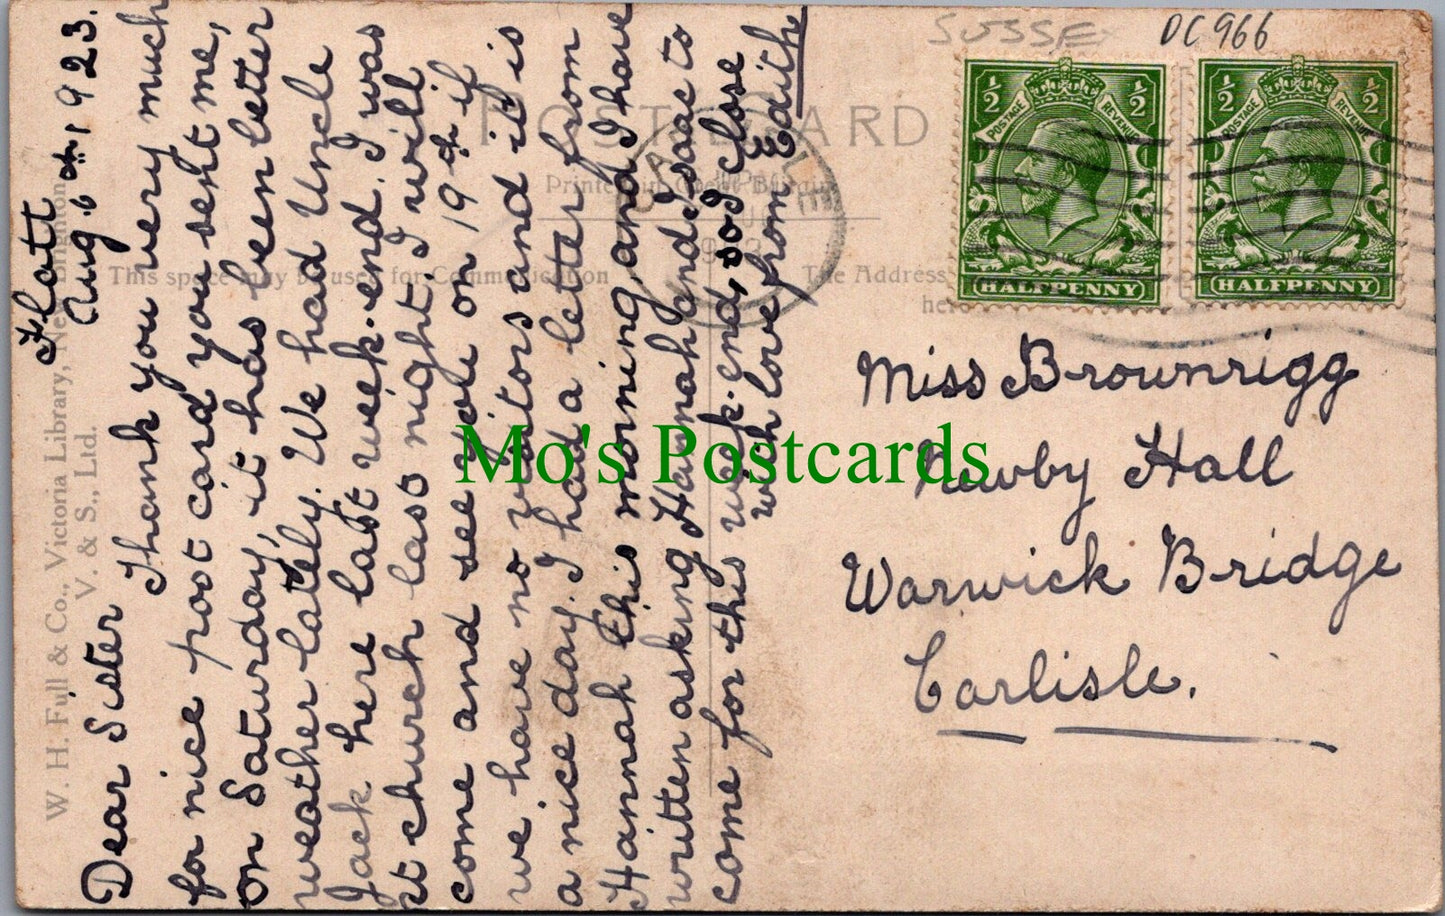 SUSSE
DC 966
POSTCARD
Printed in Great Britain
This space may be used for Communication
The Address
here
½ ½
POSTAGE REVENUE
HALFPENNY
½ ½
POSTAGE REVENUE
HALFPENNY
W. H. Full & Co., Victoria Library, New Brighton.
V. & S., Ltd.
Flatt
Aug. 6th 1923.
Dear Sister
Thank you very much
for nice post card you sent me,
on Saturday, it has been better
weather lately. We had Uncle
Jack here last week-end. I was
at church last night. I will
come and see you on 19th if
we have no visitors and it is
a nice day. I had a letter from
Hannah this morning, and I have
written asking Hannah and Isaac to
come for this week-end, so I close
with love from Edith
Miss Brownrigg
Newby Hall
Warwick Bridge
Carlisle.
Mo's Postcards